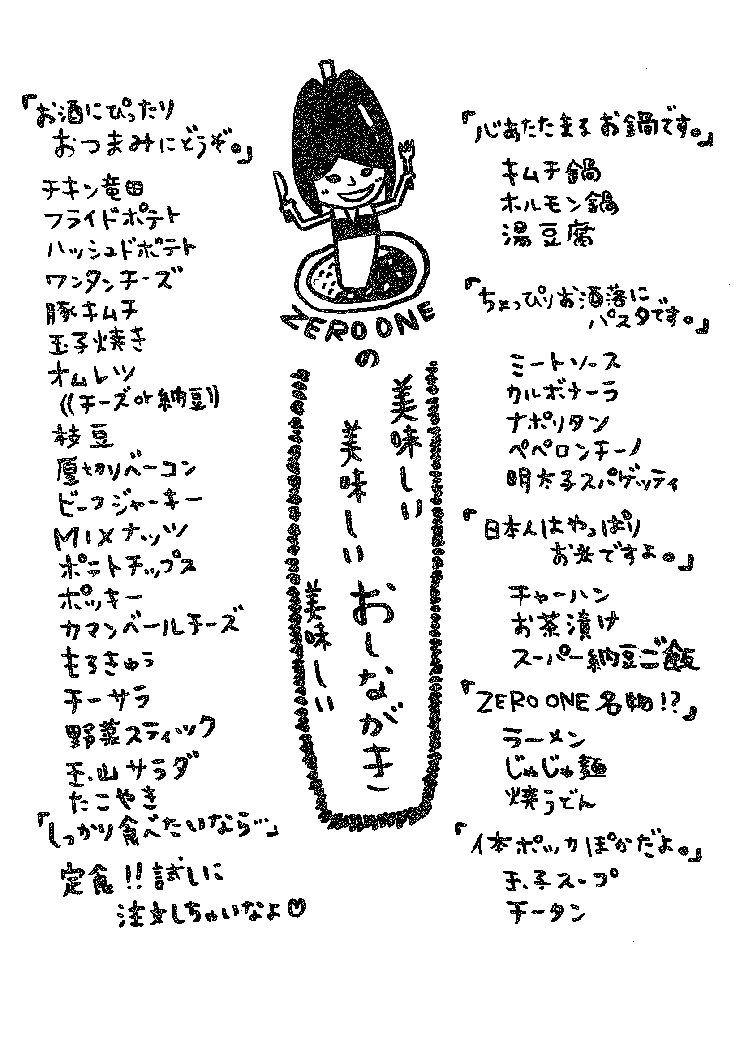 『お酒にぴったり
おつまみにどうぞ。』
チキン竜田
フライドポテト
ハッシュドポテト
ワンタンチーズ
豚キムチ
玉子焼き
オムレツ
((チーズor納豆))
枝豆
厚切りベーコン
ビーフジャーキー
MIXナッツ
ポテトチップス
ポッキー
カマンベールチーズ
もろきゅう
チーサラ
野菜スティック
玉山サラダ
たこやき
『しっかり食べたいなら…』
定食!!試しに
注文しちゃいなよ♡
ZERO ONE
の
美味しい
美味しい
おしながき
美味しい
『心あたたまるお鍋です。』
キムチ鍋
ホルモン鍋
湯豆腐
『ちょっぴりお洒落に
パスタです。』
ミートソース
カルボナーラ
ナポリタン
ペペロンチーノ
明太子スパゲッティ
『日本人はやっぱり
お米ですよ。』
チャーハン
お茶漬け
スーパー納豆ご飯
『ZERO ONE 名物!?』
ラーメン
じゃじゃ麺
焼うどん
『体ポッカぽかだよ。』
玉子スープ
チータン